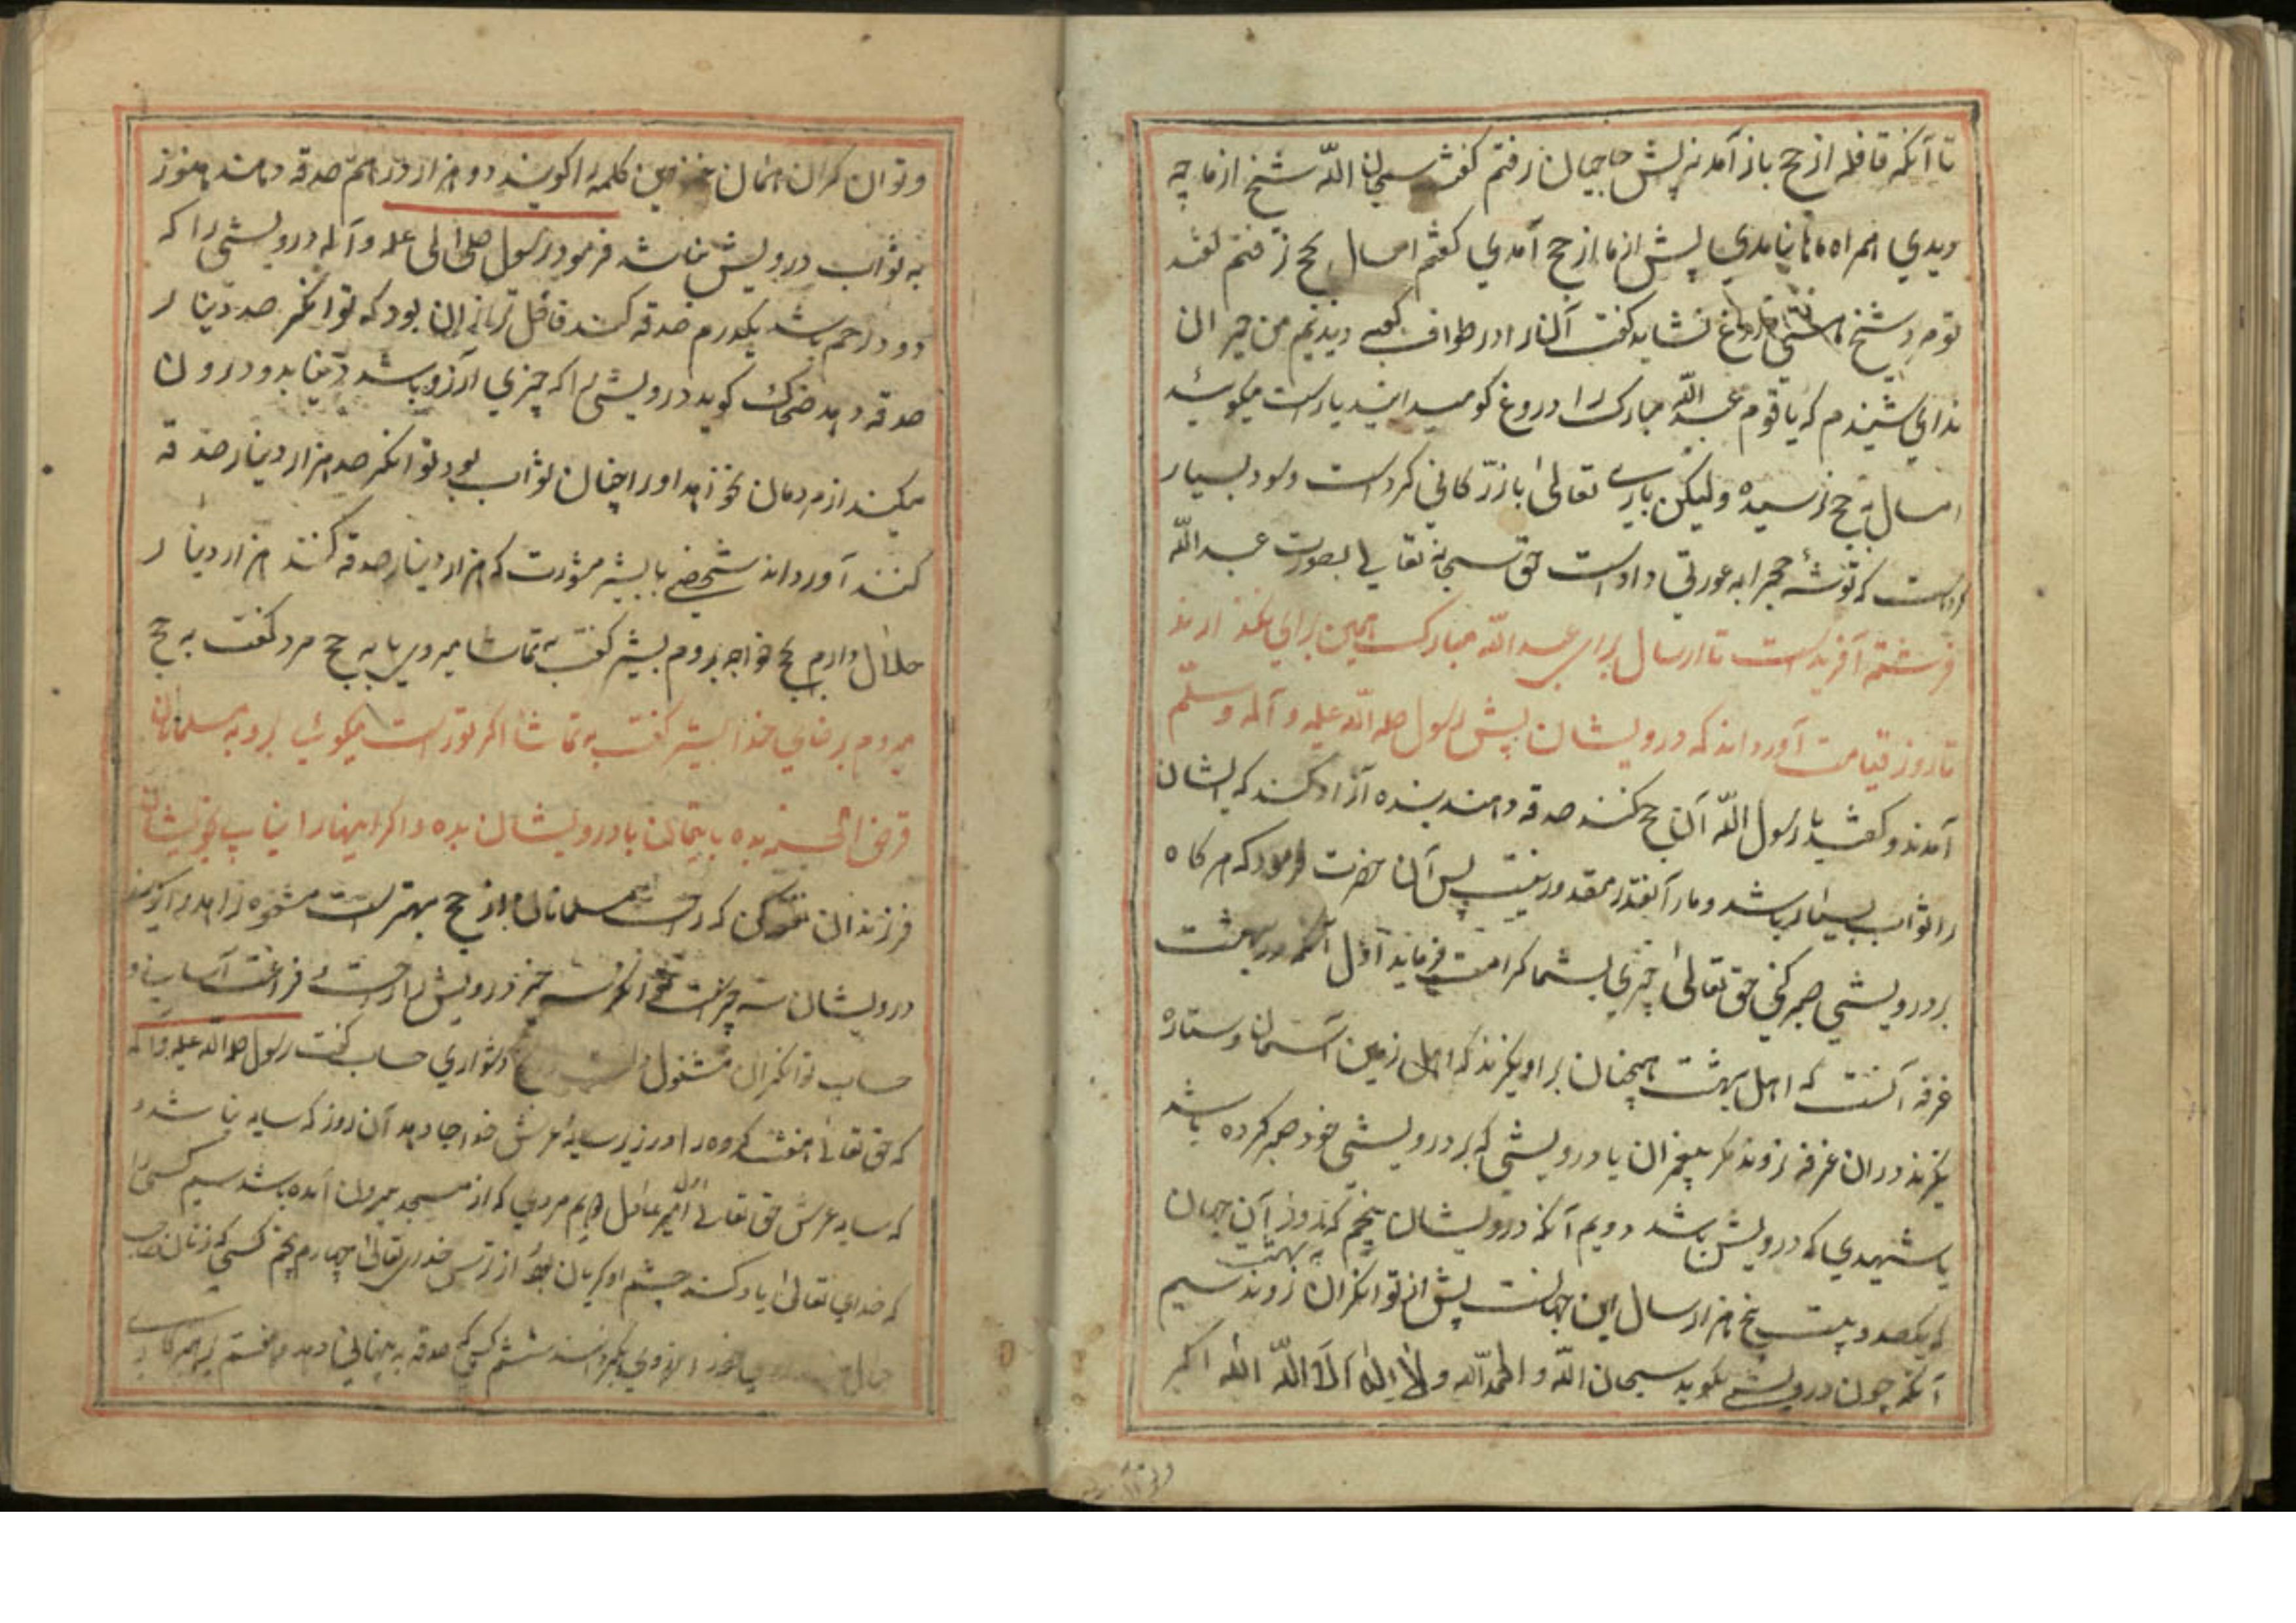 تا آنکه قافله از حج باز آمدند پیش حاجیان رفتم گفتند سبحان الله شیخ از ما چه
دیدی همراه ما نیامدی پیش از ما از حج آمدی گفتم امسال بحج نرفتم گفتند
تو مرد شیخ دروغ نشاید گفت آنرا در طواف کعبه دیدیم من حیران
ندای شنیدم که یا قوم عبد الله مبارک را دروغ گو میدانید یا راست میگوید
امسال به حج نرسیده ولیکن باری تعالی بازرگانی کرد است و سود بسیار
که توشه حج را به عورتی داد است حق سبحانه تعالی بصورت عبد الله
فرشته آفرید است تا هر سال برای عبد الله مبارک همین برای بگذارند
تا روز قیامت آورده‌اند که درویشان پیش رسول صلی الله علیه و آله وسلم
آمدند و گفتند یا رسول الله آن حج کنند صدقه دهند بنده آزاد کنند که ایشان
را ثواب بسیار باشد و ما را آنقدر مقدور نیست پس آن حضرت فرمود که هر گاه
بر درویشی صبر کنی حق تعالی چیزی بشما کرامت فرماید اول آنکه در بهشت
غرفه آنست که اهل بهشت همچنان بر او نگرند که اهل زمین آسمان و ستاره
نگرند در آن غرفه نروند مگر پیغمبران یا درویشی که بر درویشی خود صبر کرده باشد
یا شهیدی که درویش باشد دویم آنکه درویشان پنجم که روز آن جهان
که یکصد و بیست پنج هزار سال این جهانست پیش از توانگران به بهشت روند سیم
آنکه چون درویش بگوید سبحان الله و الحمد لله و لا اله الا الله الله اکبر
و توان گران همان کلمه را گویند دو هزار درهم صدقه دهند هنوز
به ثواب درویش نباشد فرمود رسول صلی الله علیه و آله درویشی را که
دو درهم باشد یکدرم صدقه کند فاضل تر از آن بود که توانگر صد دینار
صدقه دهد ضحاک گوید درویشی را که چیزی آرزو باشد و نیابد و درون
میکند از مردمان نخواهد او را چنان ثواب بود توانگر صد هزار دینار صدقه
کنند آورده‌اند شخصی با بشر مشورت که هزار دینار صدقه کنند هزار دینار
حلال دارم بحج خواهم روم بشر گفت به تماشا میروی یا به حج مرد گفت به حج
میروم برضای خدا بشر گفت به تماشا اگر تو راست میگوئی برو به مسلمانان
قرض الحسنه بده یا یتیمان یا درویشان بده و اگر اینها را نیابی بخویشان
فرزندان کن که راحت مسلمانان از حج بهتر است
درویشان سه چیز است توانگر سه چیز درویش را راحت و فراغت آسانی و
حساب توانگران مشغول و دشواری حساب گفت رسول صلی الله علیه و آله
که حق تعالی هفت گروه را در زیر سایه عرش خود جا دهد آن روز که سایه نباشد
که سایه عرش حق تعالی اول امیر عادل دویم مردی که از مسجد بیرون آمده باشد سیم کسی را
که خدای تعالی یاد کند چشم او گریان بود از ترس خدای تعالی چهارم پنجم کسی که زنان
ششم کسی که صدقه به پنهانی دهد هفتم